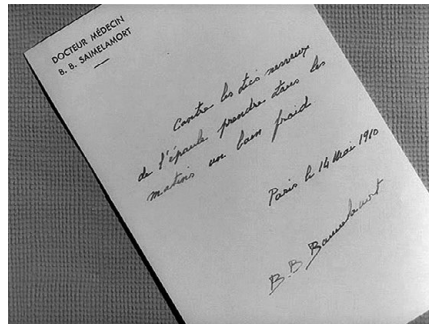 DOCTEUR MÉDECIN
B. B. SAIMELAMORT
Contre les tics nerveux
de l'épaule prendre tous les
matins un bain froid
Paris le 14 Mai 1910
B. B.